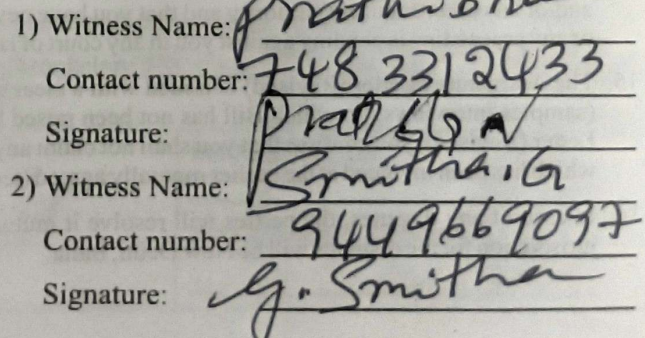 1) Witness Name: Prathibha
Contact number: 748 3312433
Signature:
2) Witness Name: Smitha. G
Contact number: 9449669097
Signature: G. Smitha